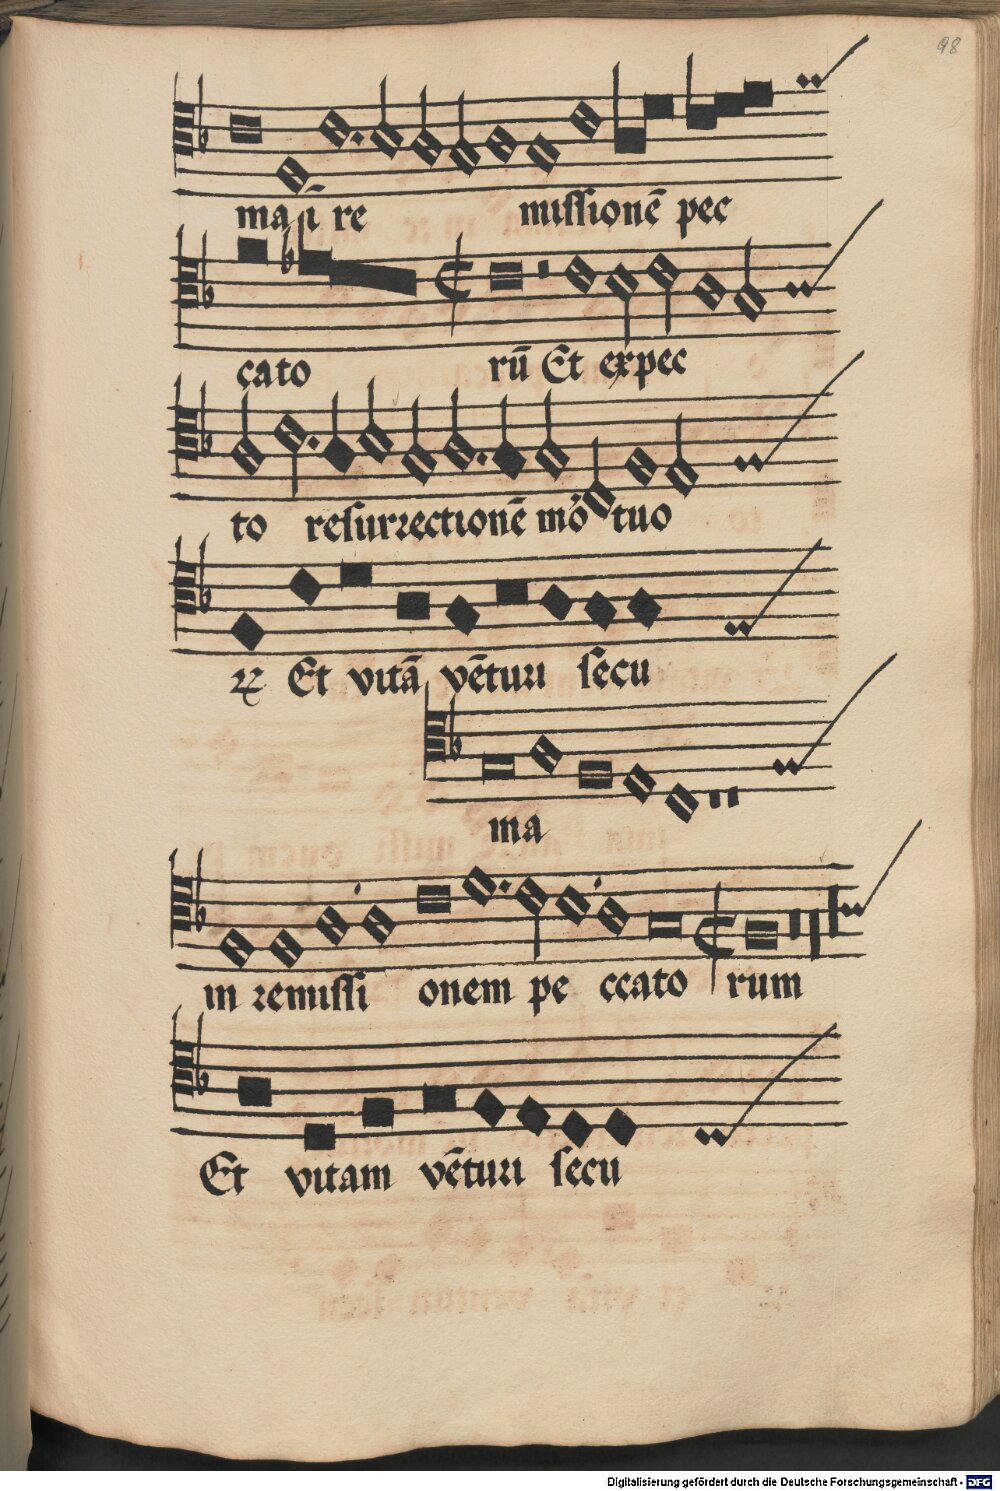 98
ma ī re missionē pec
cato rū Et expec
to resurrectionē mo tuo
ꝝ Et vitā vēturi secu
ma
in remissi onem pe ccato rum
Et vitam vēturi secu
Digitalisierung gefördert durch die Deutsche Forschungsgemeinschaft - DFG